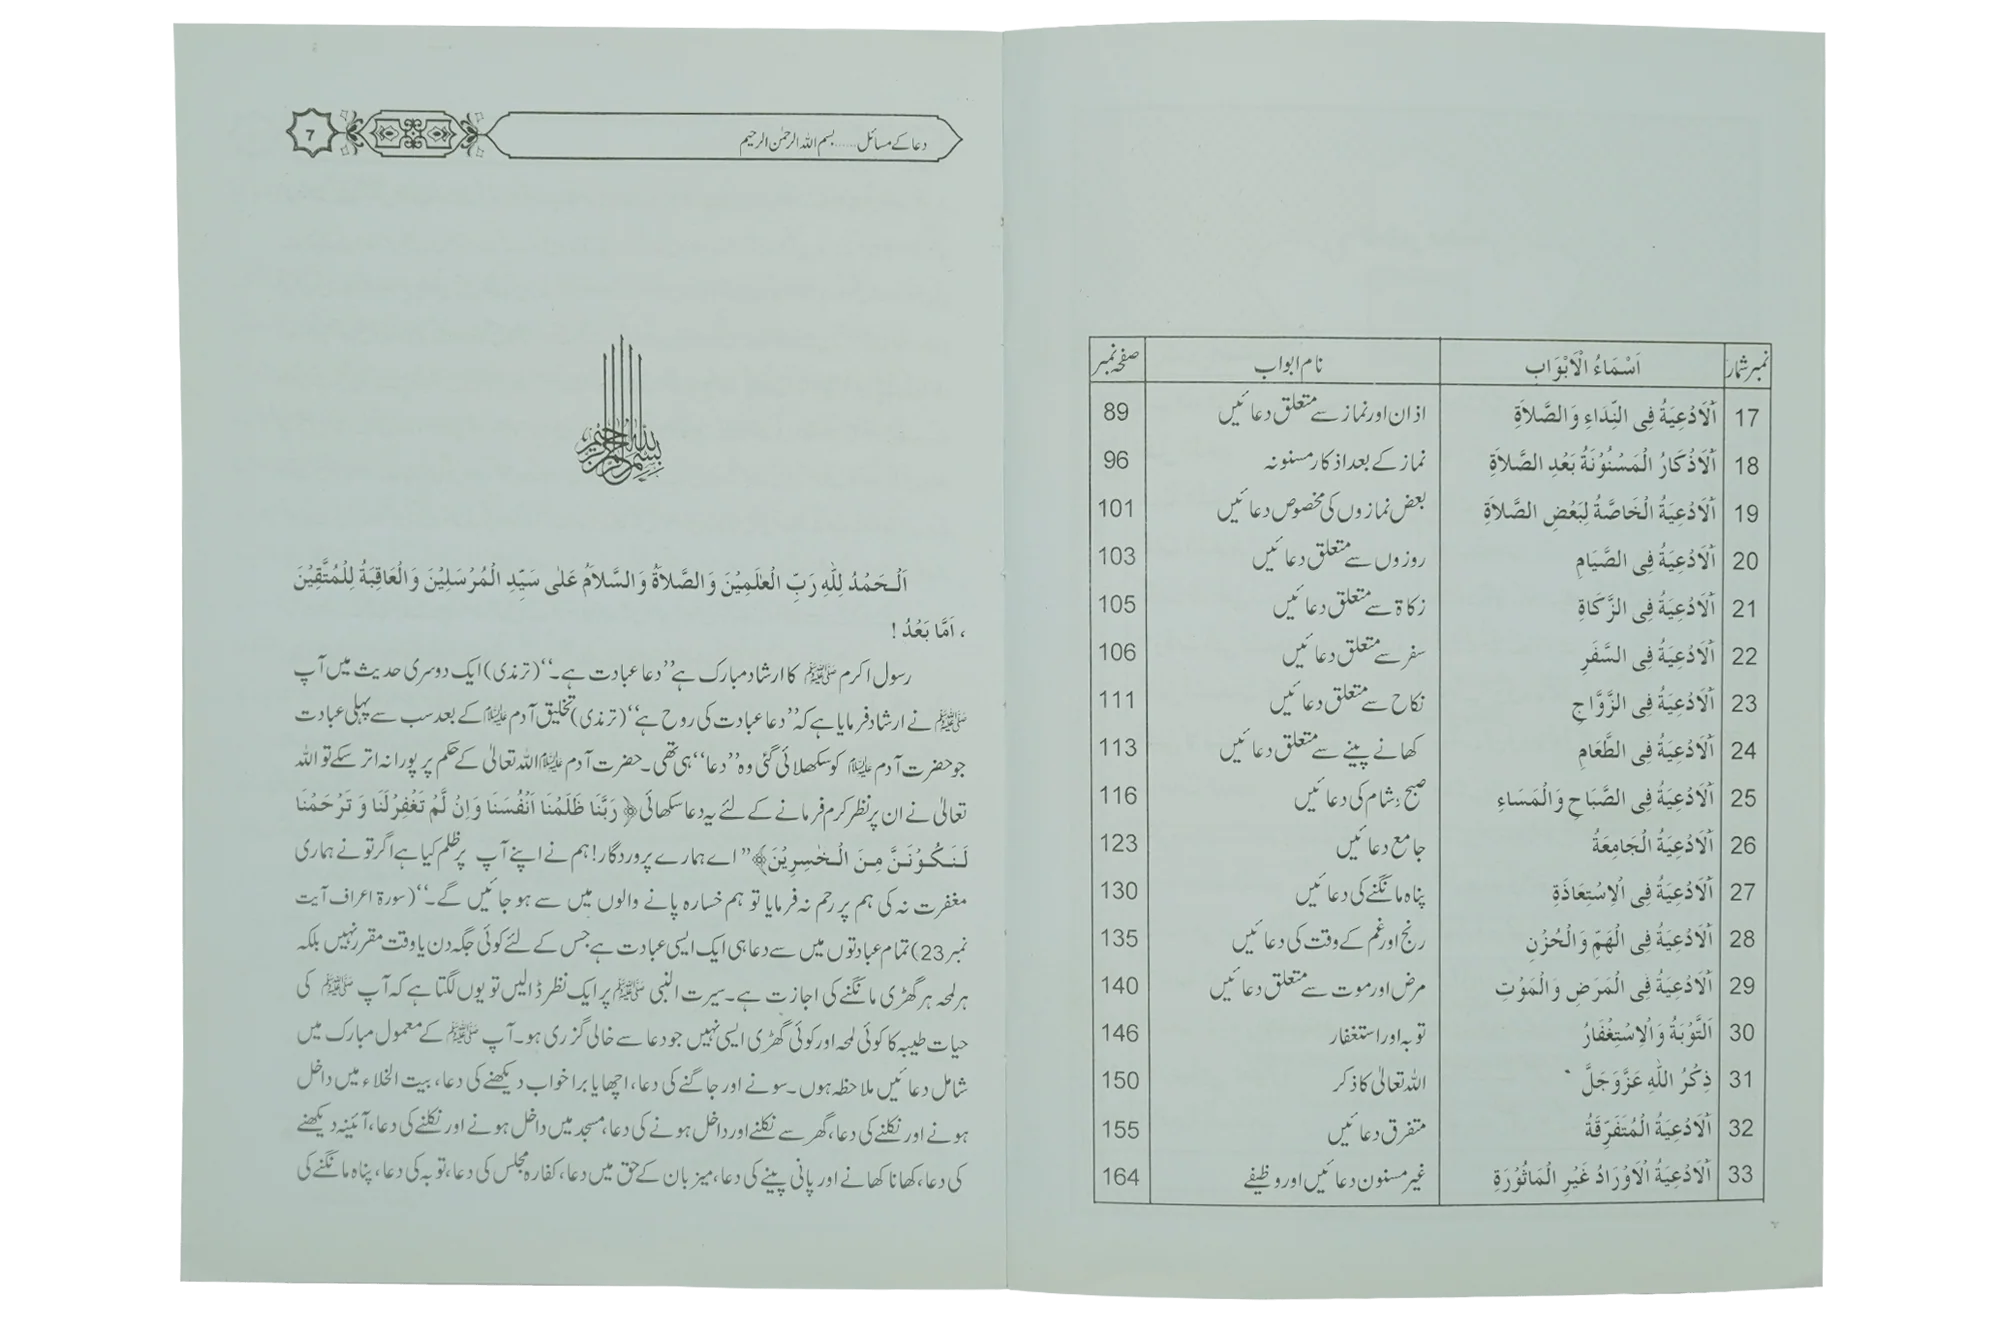 نمبر شمار اَسْمَاءُ الْاَبْوَاب نام ابواب صفحہ نمبر
17 اَلْاَدْعِيَةُ فِى النِّدَاءِ وَالصَّلاَةِ اذان اور نماز سے متعلق دعائیں 89
18 اَلْاَذْكَارُ الْمَسْنُوْنَةُ بَعْدِ الصَّلاَةِ نماز کے بعد اذکار مسنونہ 96
19 اَلْاَدْعِيَةُ الْخَاصَّةُ لِبَعْضِ الصَّلاَةِ بعض نمازوں کی مخصوص دعائیں 101
20 اَلْاَدْعِيَةُ فِى الصَّيَامِ روزوں سے متعلق دعائیں 103
21 اَلْاَدْعِيَةُ فِى الزَّكَاةِ زکاۃ سے متعلق دعائیں 105
22 اَلْاَدْعِيَةُ فِى السَّفَرِ سفر سے متعلق دعائیں 106
23 اَلْاَدْعِيَةُ فِى الزَّوَّاجِ نکاح سے متعلق دعائیں 111
24 اَلْاَدْعِيَةُ فِى الطَّعَامِ کھانے پینے سے متعلق دعائیں 113
25 اَلْاَدْعِيَةُ فِى الصَّبَاحِ وَالْمَسَاءِ صبح و شام کی دعائیں 116
26 اَلْاَدْعِيَةُ الْجَامِعَةُ جامع دعائیں 123
27 اَلْاَدْعِيَةُ فِى الْاِسْتِعَاذَةِ پناہ مانگنے کی دعائیں 130
28 اَلْاَدْعِيَةُ فِى الْهَمِّ وَالْحُزْنِ رنج اور غم کے وقت کی دعائیں 135
29 اَلْاَدْعِيَةُ فِى الْمَرَضِ وَالْمَوْتِ مرض اور موت سے متعلق دعائیں 140
30 اَلتَّوْبَةُ وَالْاِسْتِغْفَارُ توبہ اور استغفار 146
31 ذِكْرُ اللّٰهِ عَزَّوَجَلَّ اللہ تعالیٰ کا ذکر 150
32 اَلْاَدْعِيَةُ الْمُتَفَرِّقَةُ متفرق دعائیں 155
33 اَلْاَدْعِيَةُ الْاَوْرَادُ غَيْرِ الْمَاثُوْرَةِ غیر مسنون دعائیں اور وظیفے 164
دعا کے مسائل ...... بسم اللہ الرحمٰن الرحیم 7
بسم الله الرحمن الرحيم
اَلْحَمْدُ لِلّٰهِ رَبِّ الْعٰلَمِيْنَ وَالصَّلاَةُ وَالسَّلاَمُ عَلٰى سَيِّدِ الْمُرْسَلِيْنَ وَالْعَاقِبَةُ لِلْمُتَّقِيْنَ
، اَمَّا بَعْدُ !
رسول اکرم ﷺ کا ارشاد مبارک ہے ’’دعا عبادت ہے۔‘‘ (ترمذی) ایک دوسری حدیث میں آپ
ﷺ نے ارشاد فرمایا ہے کہ ’’دعا عبادت کی روح ہے‘‘ (ترمذی) تخلیق آدم علیہ السلام کے بعد سب سے پہلی عبادت
جو حضرت آدم علیہ السلام کو سکھلائی گئی وہ ’’دعا‘‘ ہی تھی۔ حضرت آدم علیہ السلام اللہ تعالیٰ کے حکم پر پورا نہ اتر سکے تو اللہ
تعالیٰ نے ان پر نظر کرم فرمانے کے لئے یہ دعا سکھائی ﴿ رَبَّنَا ظَلَمْنَا اَنْفُسَنَا وَاِنْ لَّمْ تَغْفِرْلَنَا وَ تَرْحَمْنَا
لَنَكُوْنَنَّ مِنَ الْخٰسِرِيْنَ﴾ ’’اے ہمارے پروردگار! ہم نے اپنے آپ پر ظلم کیا ہے اگر تو نے ہماری
مغفرت نہ کی ہم پر رحم نہ فرمایا تو ہم خسارہ پانے والوں میں سے ہو جائیں گے۔‘‘ (سورۃ اعراف آیت
نمبر 23) تمام عبادتوں میں سے دعا ہی ایک ایسی عبادت ہے جس کے لئے کوئی جگہ دن یا وقت مقرر نہیں بلکہ
ہر لمحہ ہر گھڑی مانگنے کی اجازت ہے۔ سیرت النبی ﷺ پر ایک نظر ڈالیں تو یوں لگتا ہے کہ آپ ﷺ کی
حیات طیبہ کا کوئی لمحہ اور کوئی گھڑی ایسی نہیں جو دعا سے خالی گزری ہو۔ آپ ﷺ کے معمول مبارک میں
شامل دعائیں ملاحظہ ہوں۔ سونے اور جاگنے کی دعا، اچھا یا برا خواب دیکھنے کی دعا، بیت الخلاء میں داخل
ہونے اور نکلنے کی دعا، گھر سے نکلنے اور داخل ہونے کی دعا، مسجد میں داخل ہونے اور نکلنے کی دعا، آئینہ دیکھنے
کی دعا، کھانا کھانے اور پانی پینے کی دعا، میزبان کے حق میں دعا، کفارہ مجلس کی دعا، توبہ کی دعا، پناہ مانگنے کی